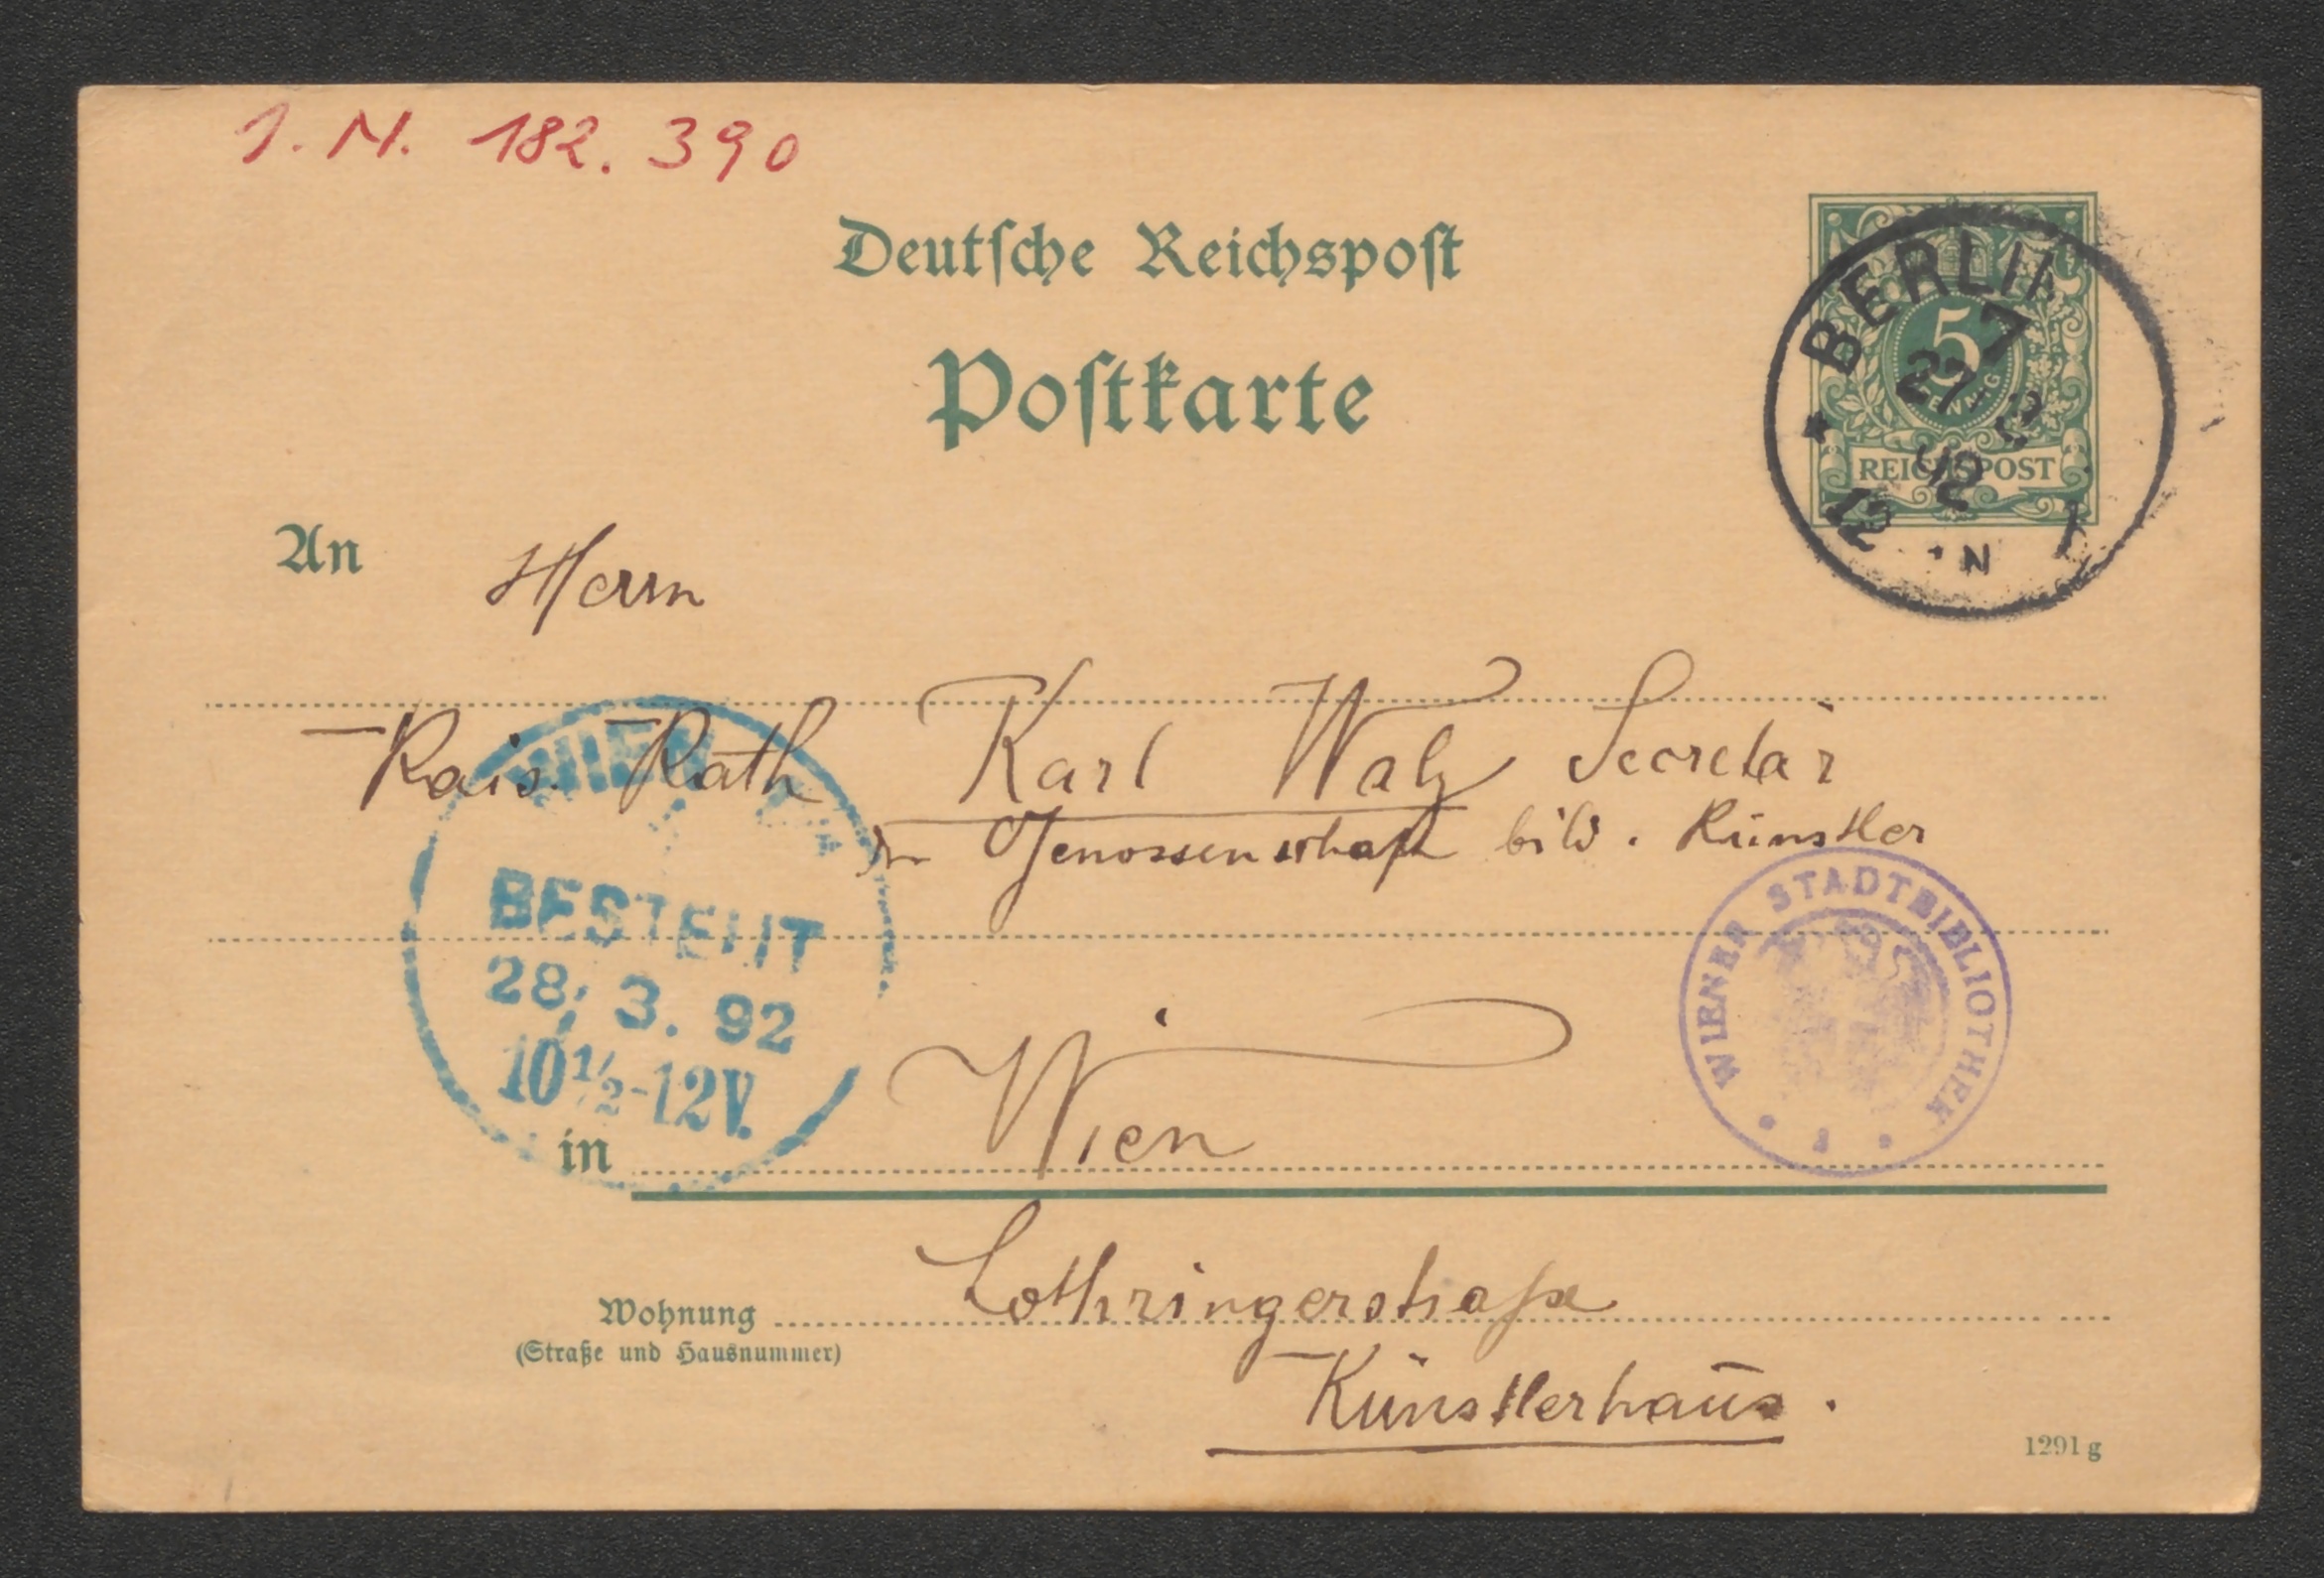 J. N. 182.390
Deutsche Reichspost
Postkarte
BERLIN
7
27/3
92
12 N
5
PFENNIG
REICHSPOST
An Herrn
Kais. Rath Karl Walz Secretär
Genossenschaft bild. Künstler
WIEN
BESTELLT
28. 3. 92
10½-12V.
WIENER STADTBIBLIOTHEK
in Wien
Wohnung Lothringerstraße
(Straße und Hausnummer)
Künstlerhaus.
1291 g